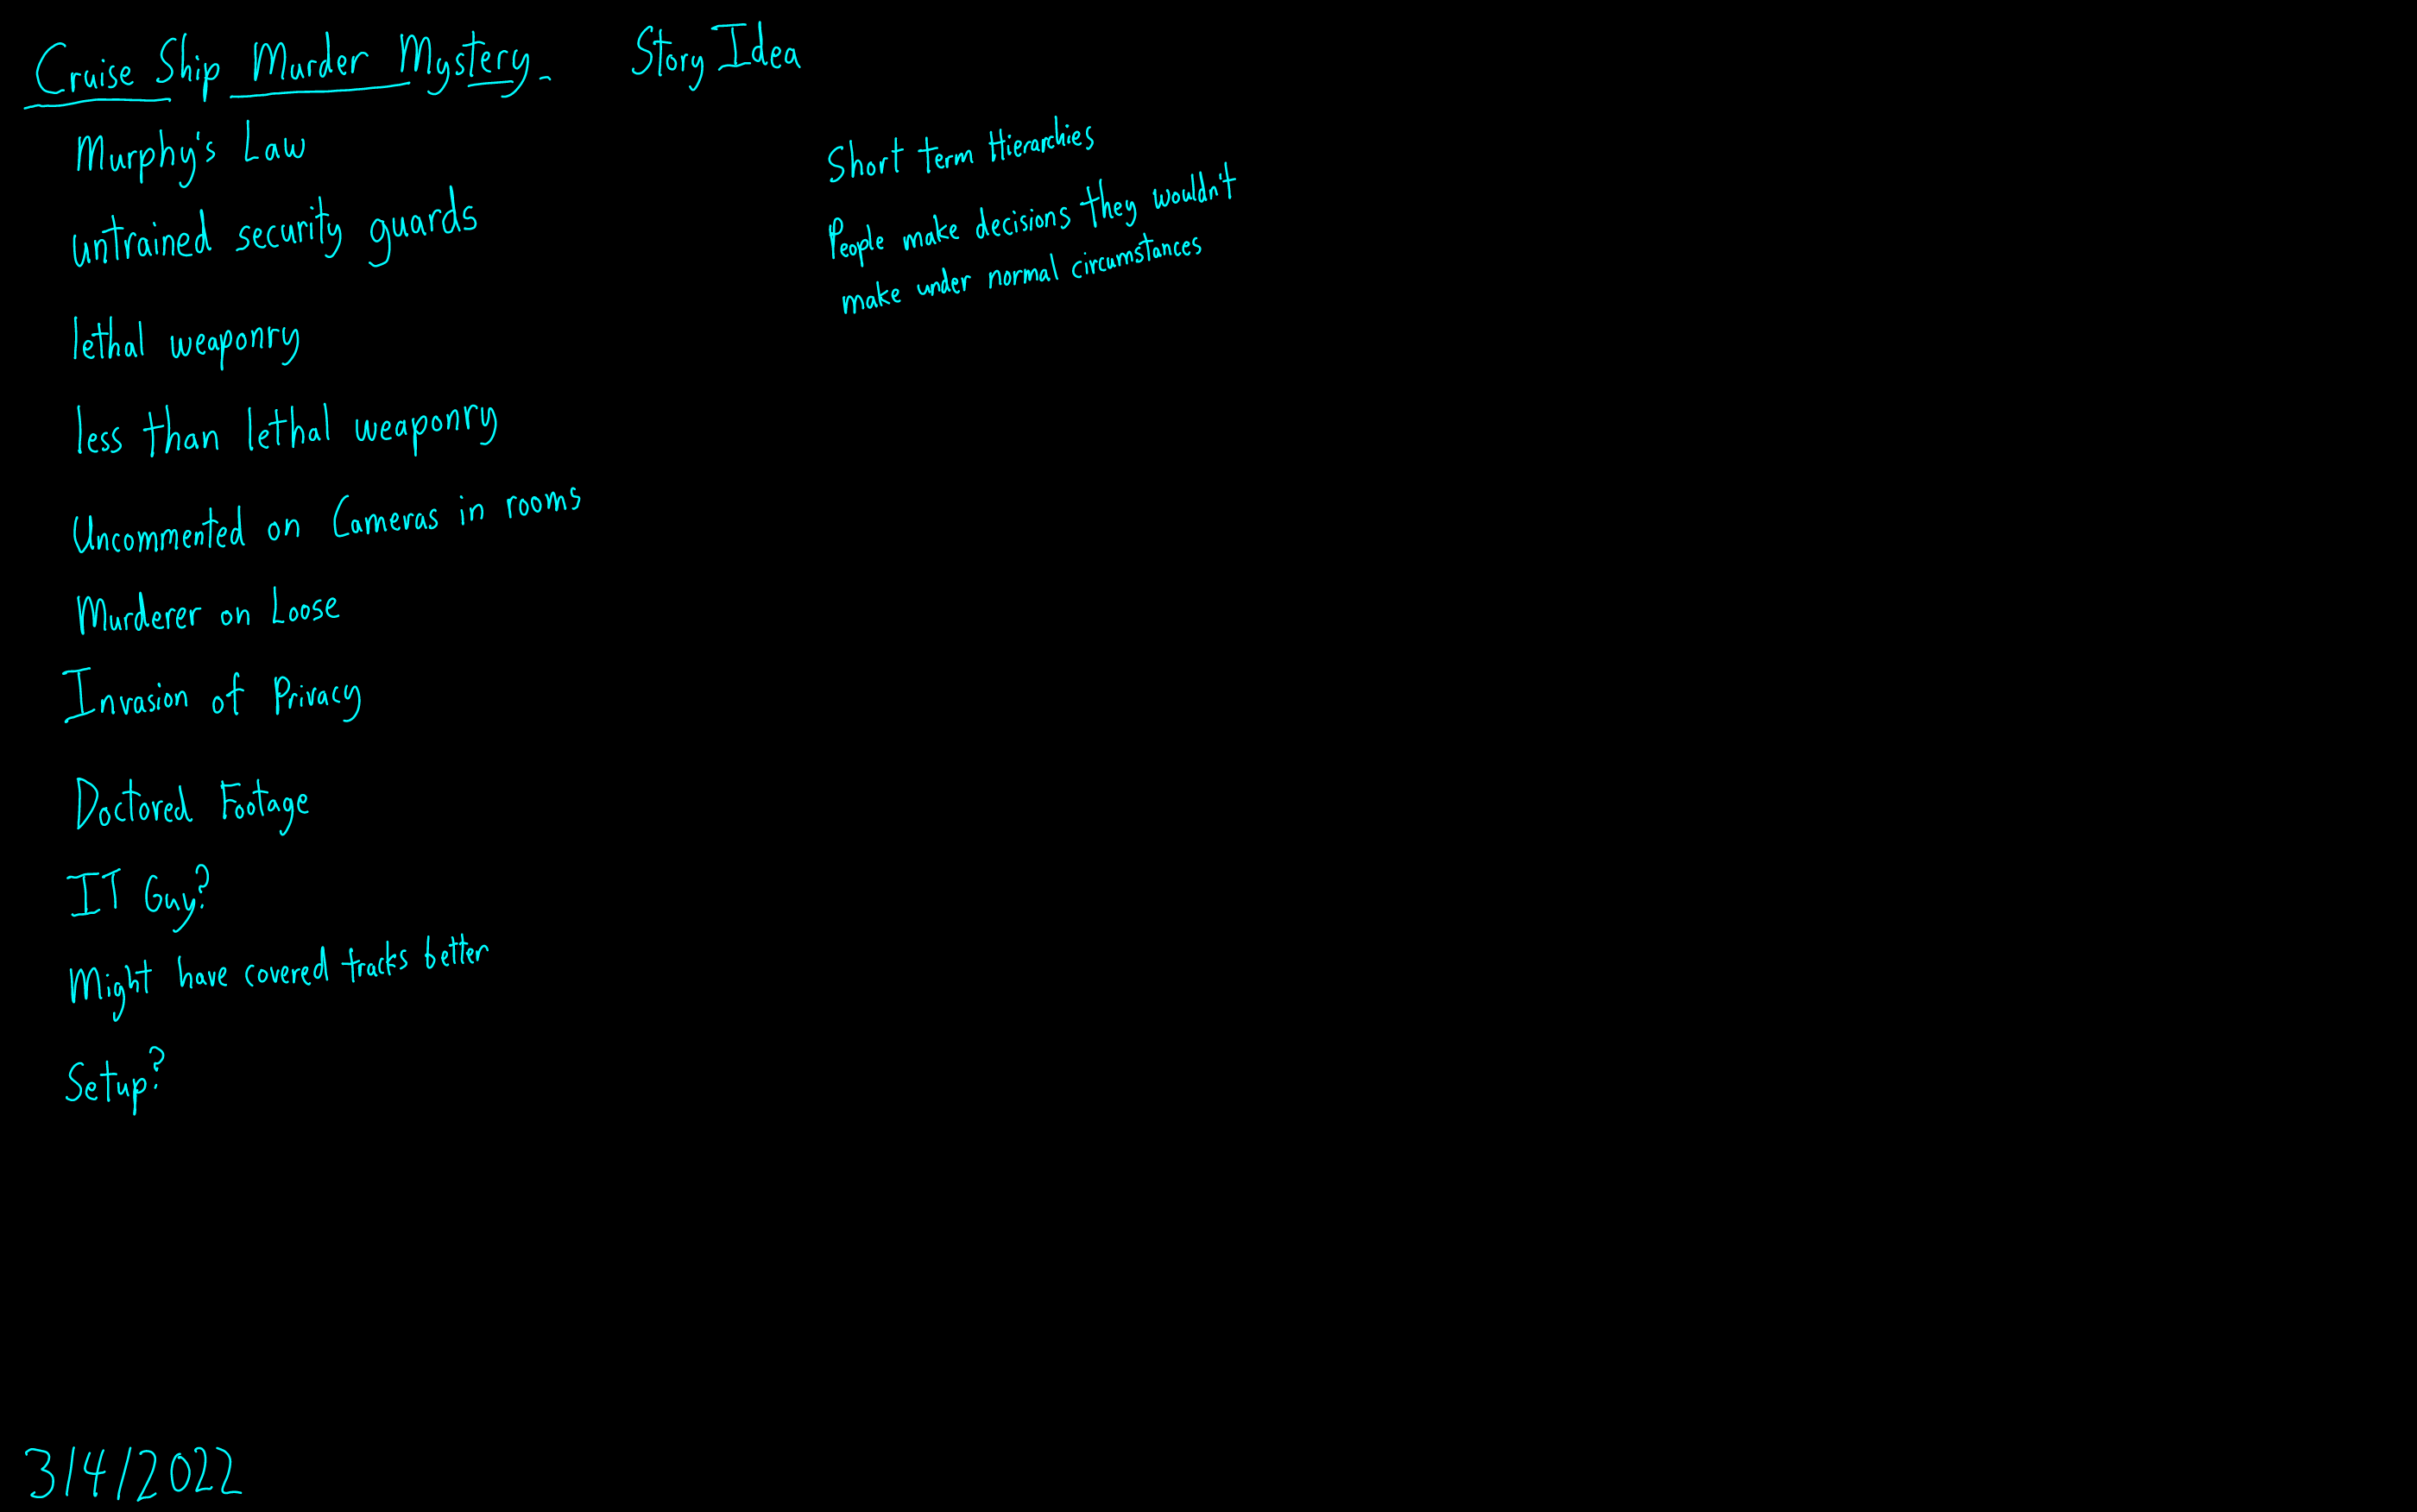 Cruise Ship Murder Mystery - Story Idea
Murphy's Law
untrained security guards
lethal weaponry
less than lethal weaponry
Uncommented on Cameras in rooms
Murderer on Loose
Invasion of Privacy
Doctored Footage
IT Guy?
Might have covered tracks better
Setup?
Short term Hierarchies
People make decisions they wouldn't
make under normal circumstances
3/4/2022